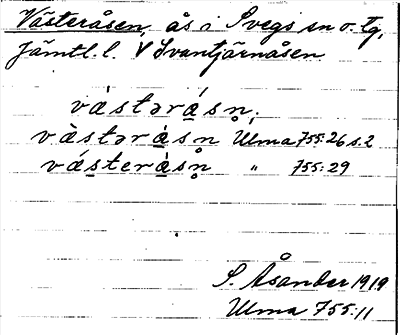 Västeråsen, ås i Svegs sn o. tg,
Jämtl. l. V Svantjärnåsen
vástərásn̥,
vàstərásn̥ Ulma 755:26 s. 2
vásterásn̥ " 755:29
S. Åsander 1919
Ulma 755:11